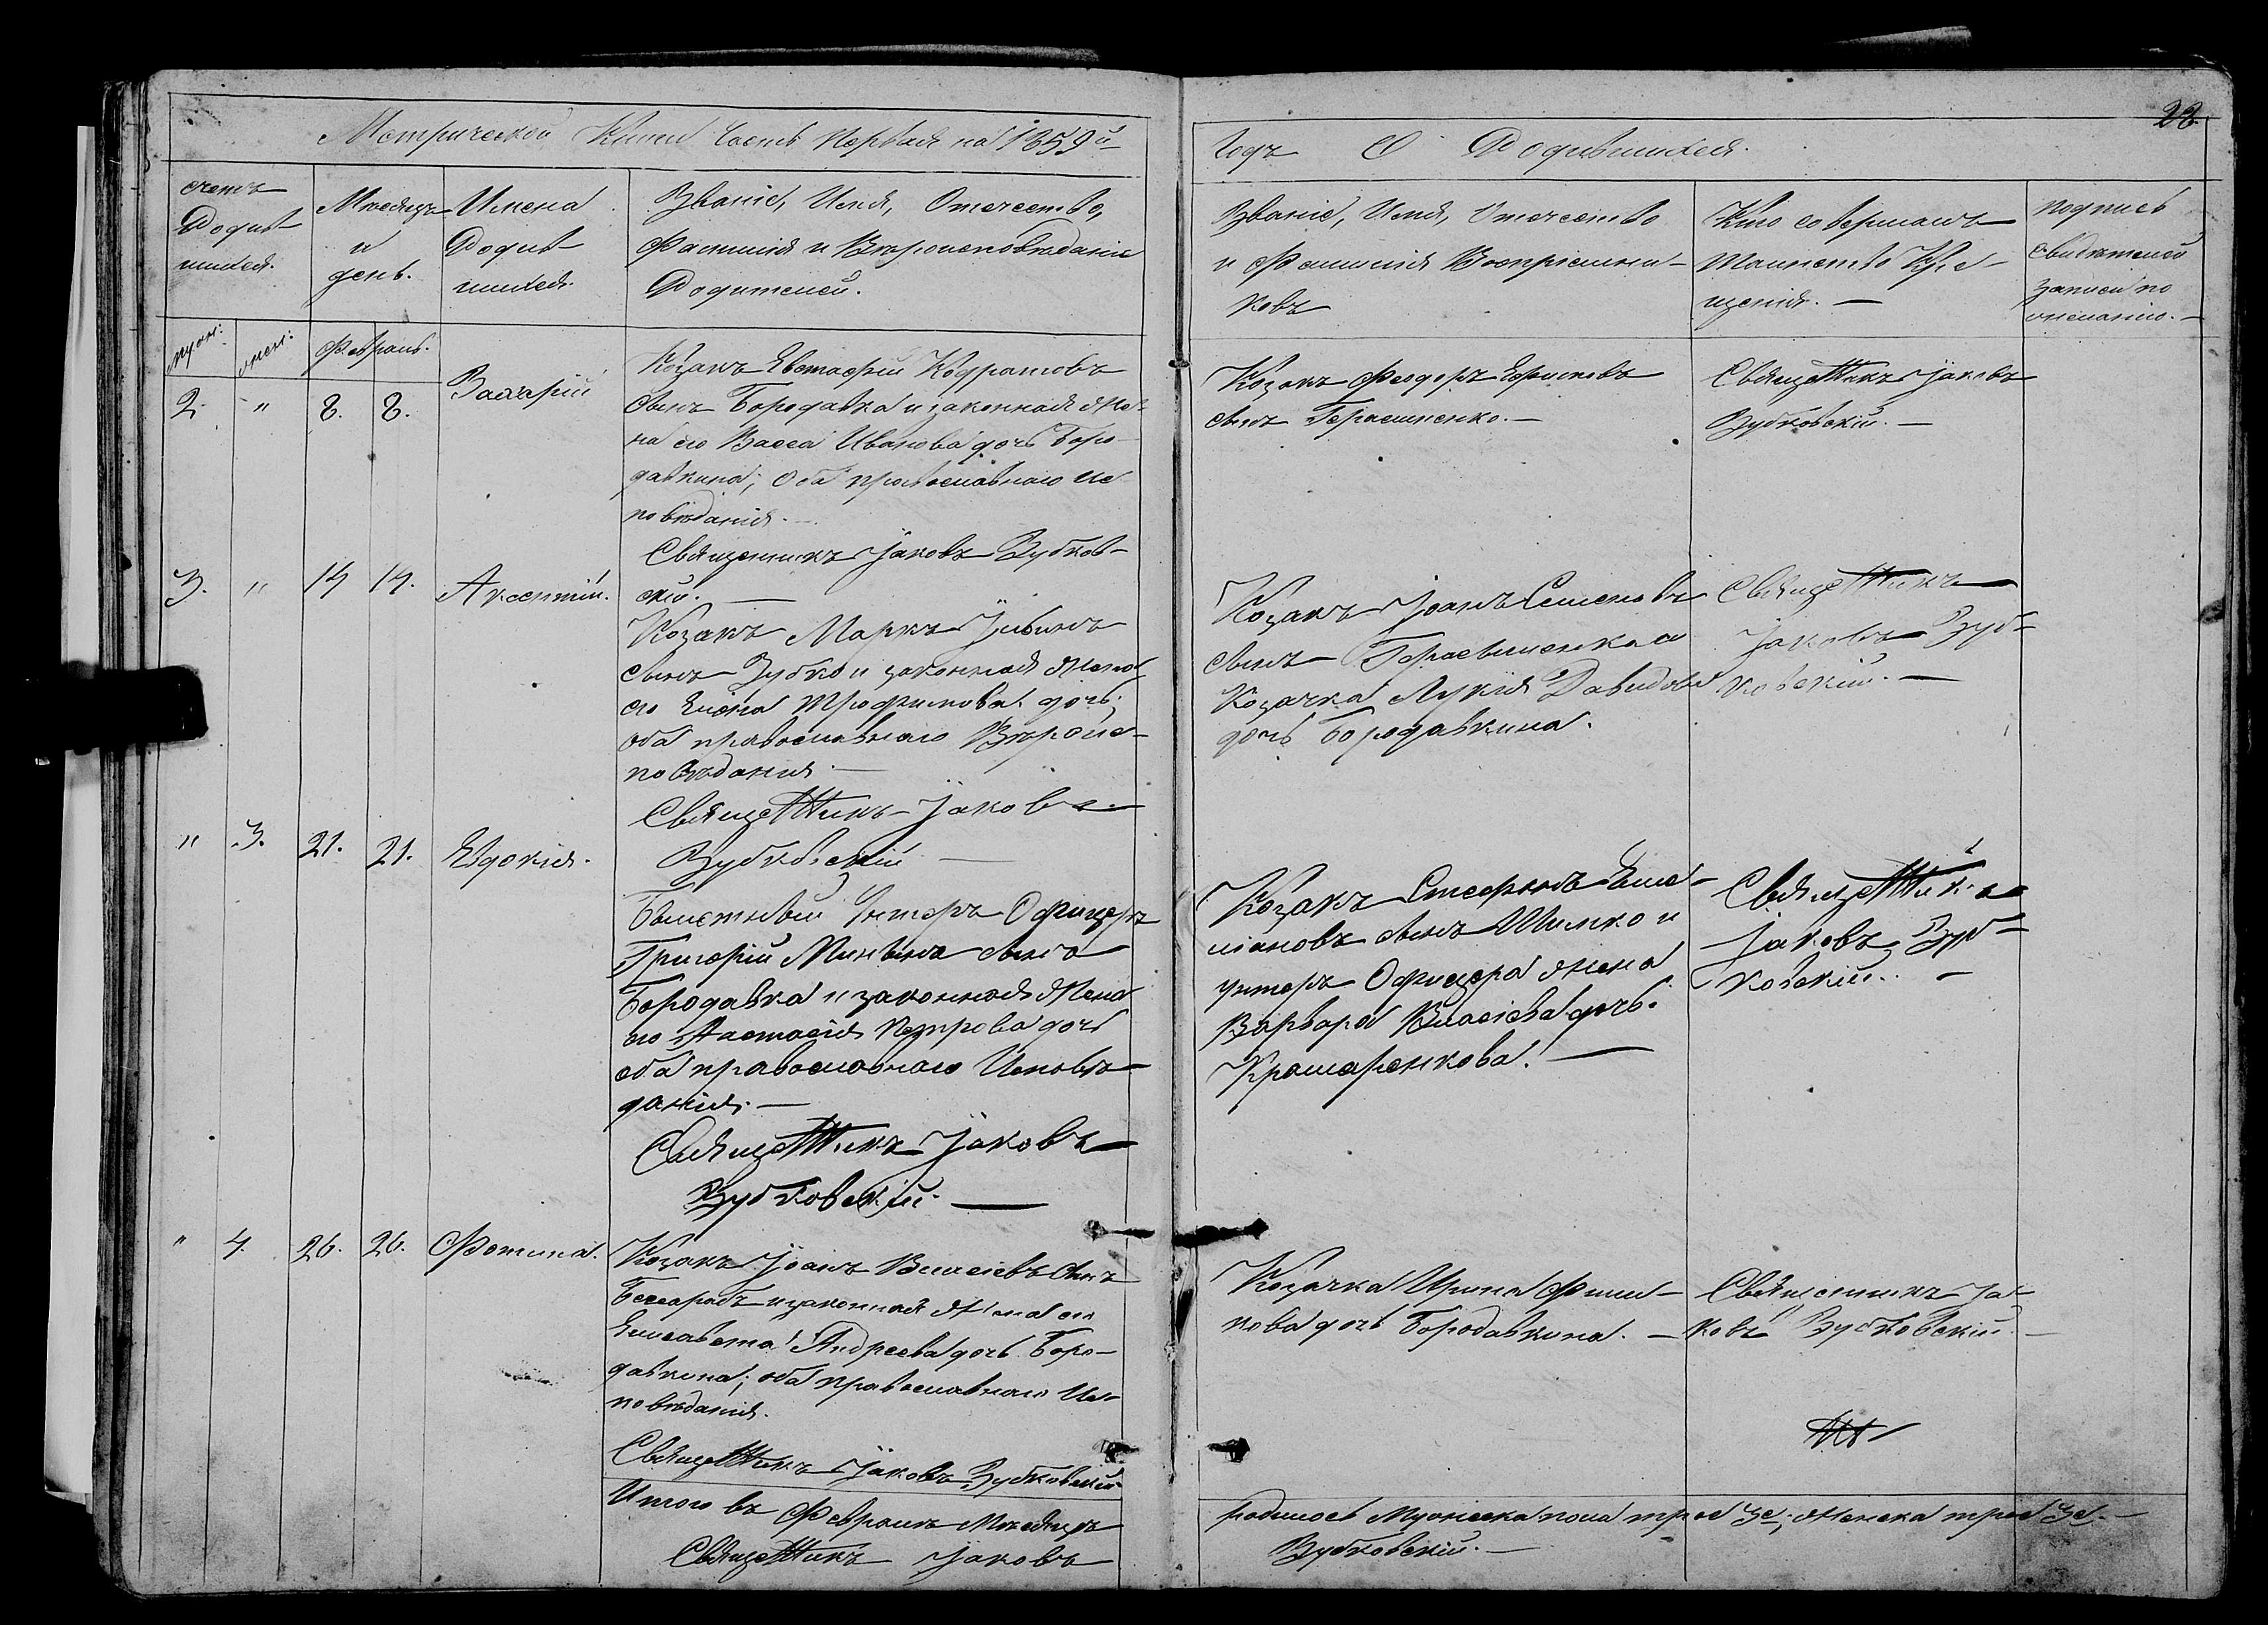 22.
Метрической Книги Часть первая на 1859й
Годъ О Родившихся.
счетъ
Родив-
шихся.
Мѣсяцъ
и
день.
Имена
Родив-
шихся.
Званіе, Имя, Отечество,
Фамилія и Вѣроисповѣданіе
Родителей.
Званіе, Имя, Отечество
и Фамилія Воспріемни-
ковъ
Кто совершалъ
таинство Кре-
щенія. —
подпись
свидѣтелей
записи по
желанію. —
муж:
жен:
Февраль.
2. " 8. 8.
Захарій
Козакъ Евстафій Кодратовъ
сынъ Бородавка и законная же-
на его Васса Иванова дочь Боро-
давкина; оба православнаго Ис-
повѣданія. —
Священникъ Іаковъ Зубков-
скій. —
Козакъ Феодоръ Ефимовъ
сынъ Герасименко. —
Священникъ Іаковъ
Зубковскій. —
3. " 14 14. Аксентій.
Козакъ Маркъ
сынъ Зубко и законная жена
его Елена Трофимова дочь;
оба православнаго Вѣроис-
повѣданія —
Священникъ Іаковъ
Зубковскій —
Козакъ Іоанъ Семеновъ
сынъ Герасименко и
Козачка Лукія Давидова
дочь Бородавкина.
Священникъ
Іаковъ Зуб-
ковскій. —
" 3. 21. 21. Евдокія.
Унтеръ Офицеръ
Григорій сынъ
Бородавка и законная жена
его Настасія Петрова дочь
оба православнаго Исповѣ-
данія. —
Священникъ Іаковъ
Зубковскій. —
Козакъ Стефанъ Еме-
ліановъ сынъ Шимко и
унтеръ Офицера жена
Варвара Власіева дочь
Крамаренкова. —
Священникъ
Іаковъ Зуб-
ковскій. —
" 4. 26. 26. Фотина.
Козакъ Іоанъ Власіевъ сынъ
Бессарабъ и законная жена его
Елисавета Андреева дочь Боро-
давкина; оба православнаго Ис-
повѣданія.
Священникъ Іаковъ Зубковскій
Козачка Ирина Фили-
пова дочь Бородавкина. —
Священникъ Іа-
ковъ Зубковскій. —
Итого въ Февралѣ Мѣсяцѣ
родилось Мужеска пола трое 3е; Женска трое 3е. —
Священникъ Іаковъ
Зубковскій. —